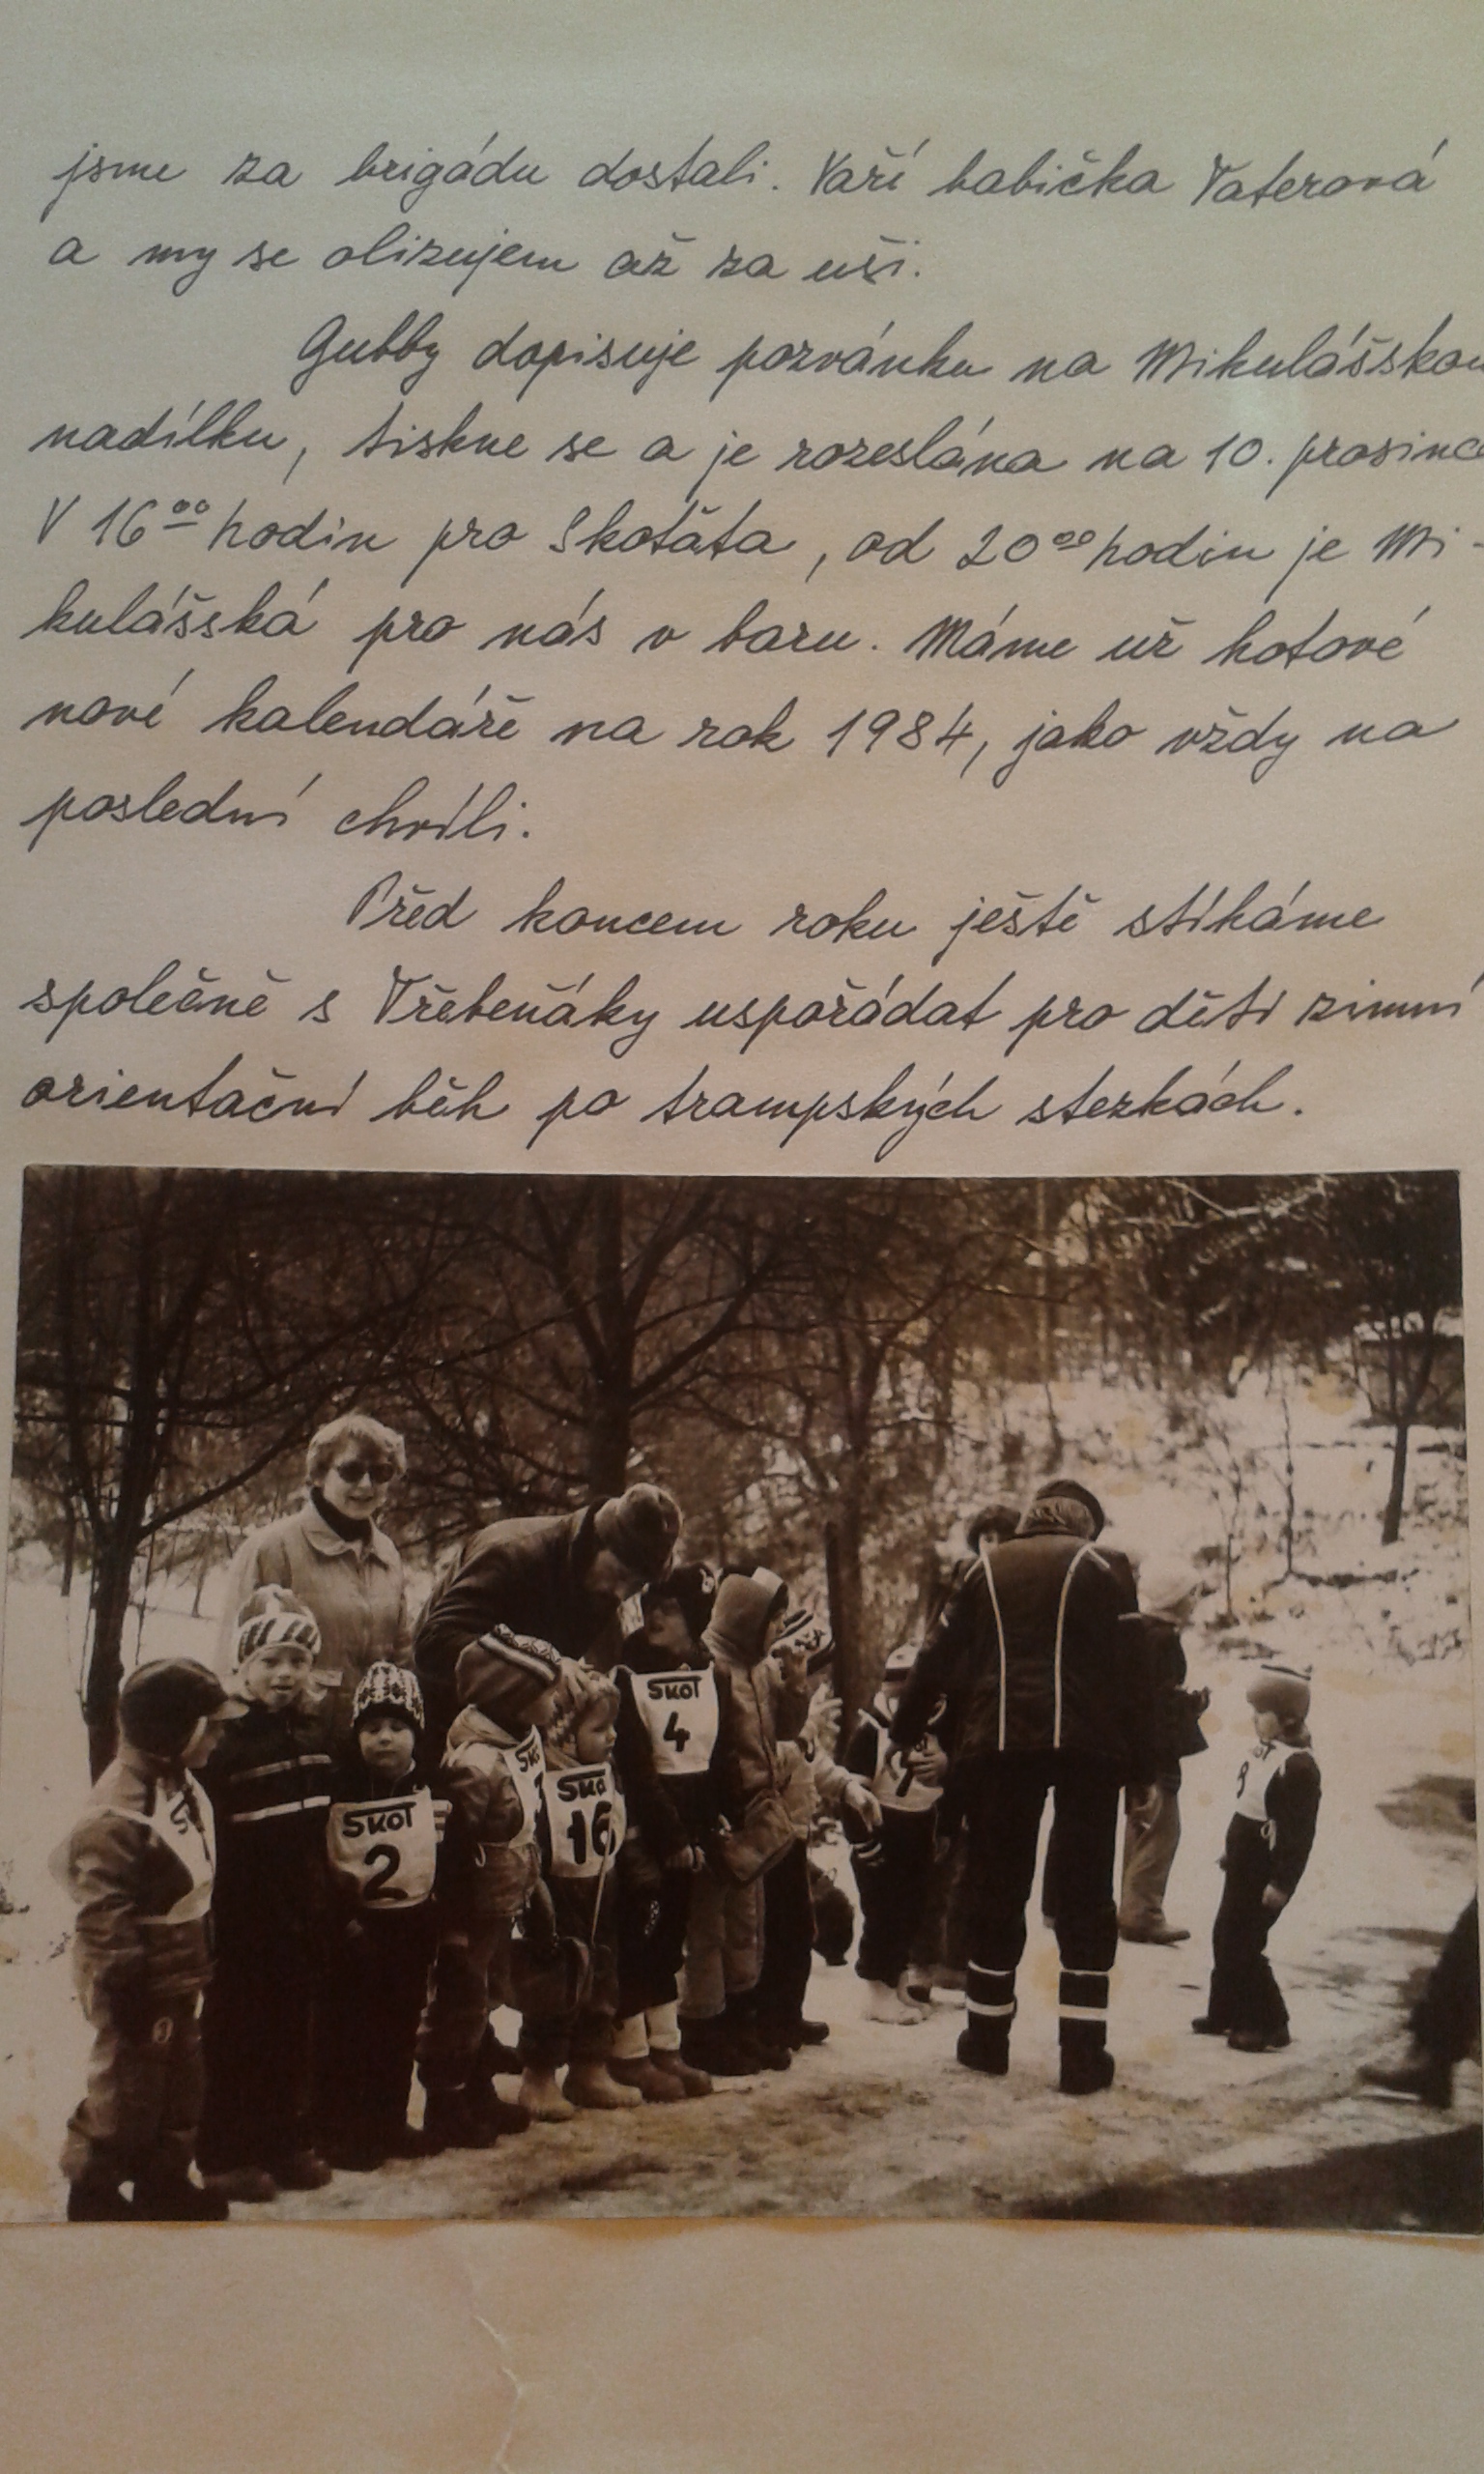 jsme za brigádu dostali. Vaří babička Vaterová
a my se olizujem až za uši.
Gubby dopisuje pozvánku na Mikulášskou
nadílku, tiskne se a je rozeslána na 10. prosince
V 16⁰⁰ hodin pro Skotáta, od 20⁰⁰ hodin je Mi-
kulášská pro nás v baru. Máme už hotové
nové kalendáře na rok 1984, jako vždy na
poslední chvíli.
Před koncem roku ještě stíháme
společně s Třebeňáky uspořádat pro děti zimní
orientační běh po trampských stezkách.
SKOT
4
SKOT
2
SKO
16